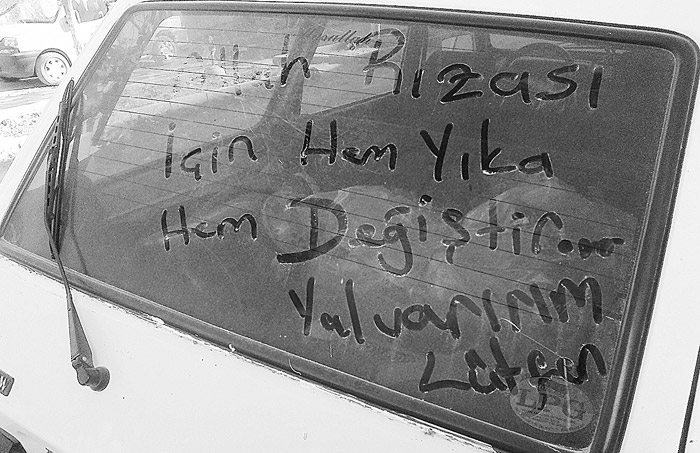 Allah Rızası
İçin Hem Yıka
Hem Değiştir...
Yalvarırım
Lütfen
LPG